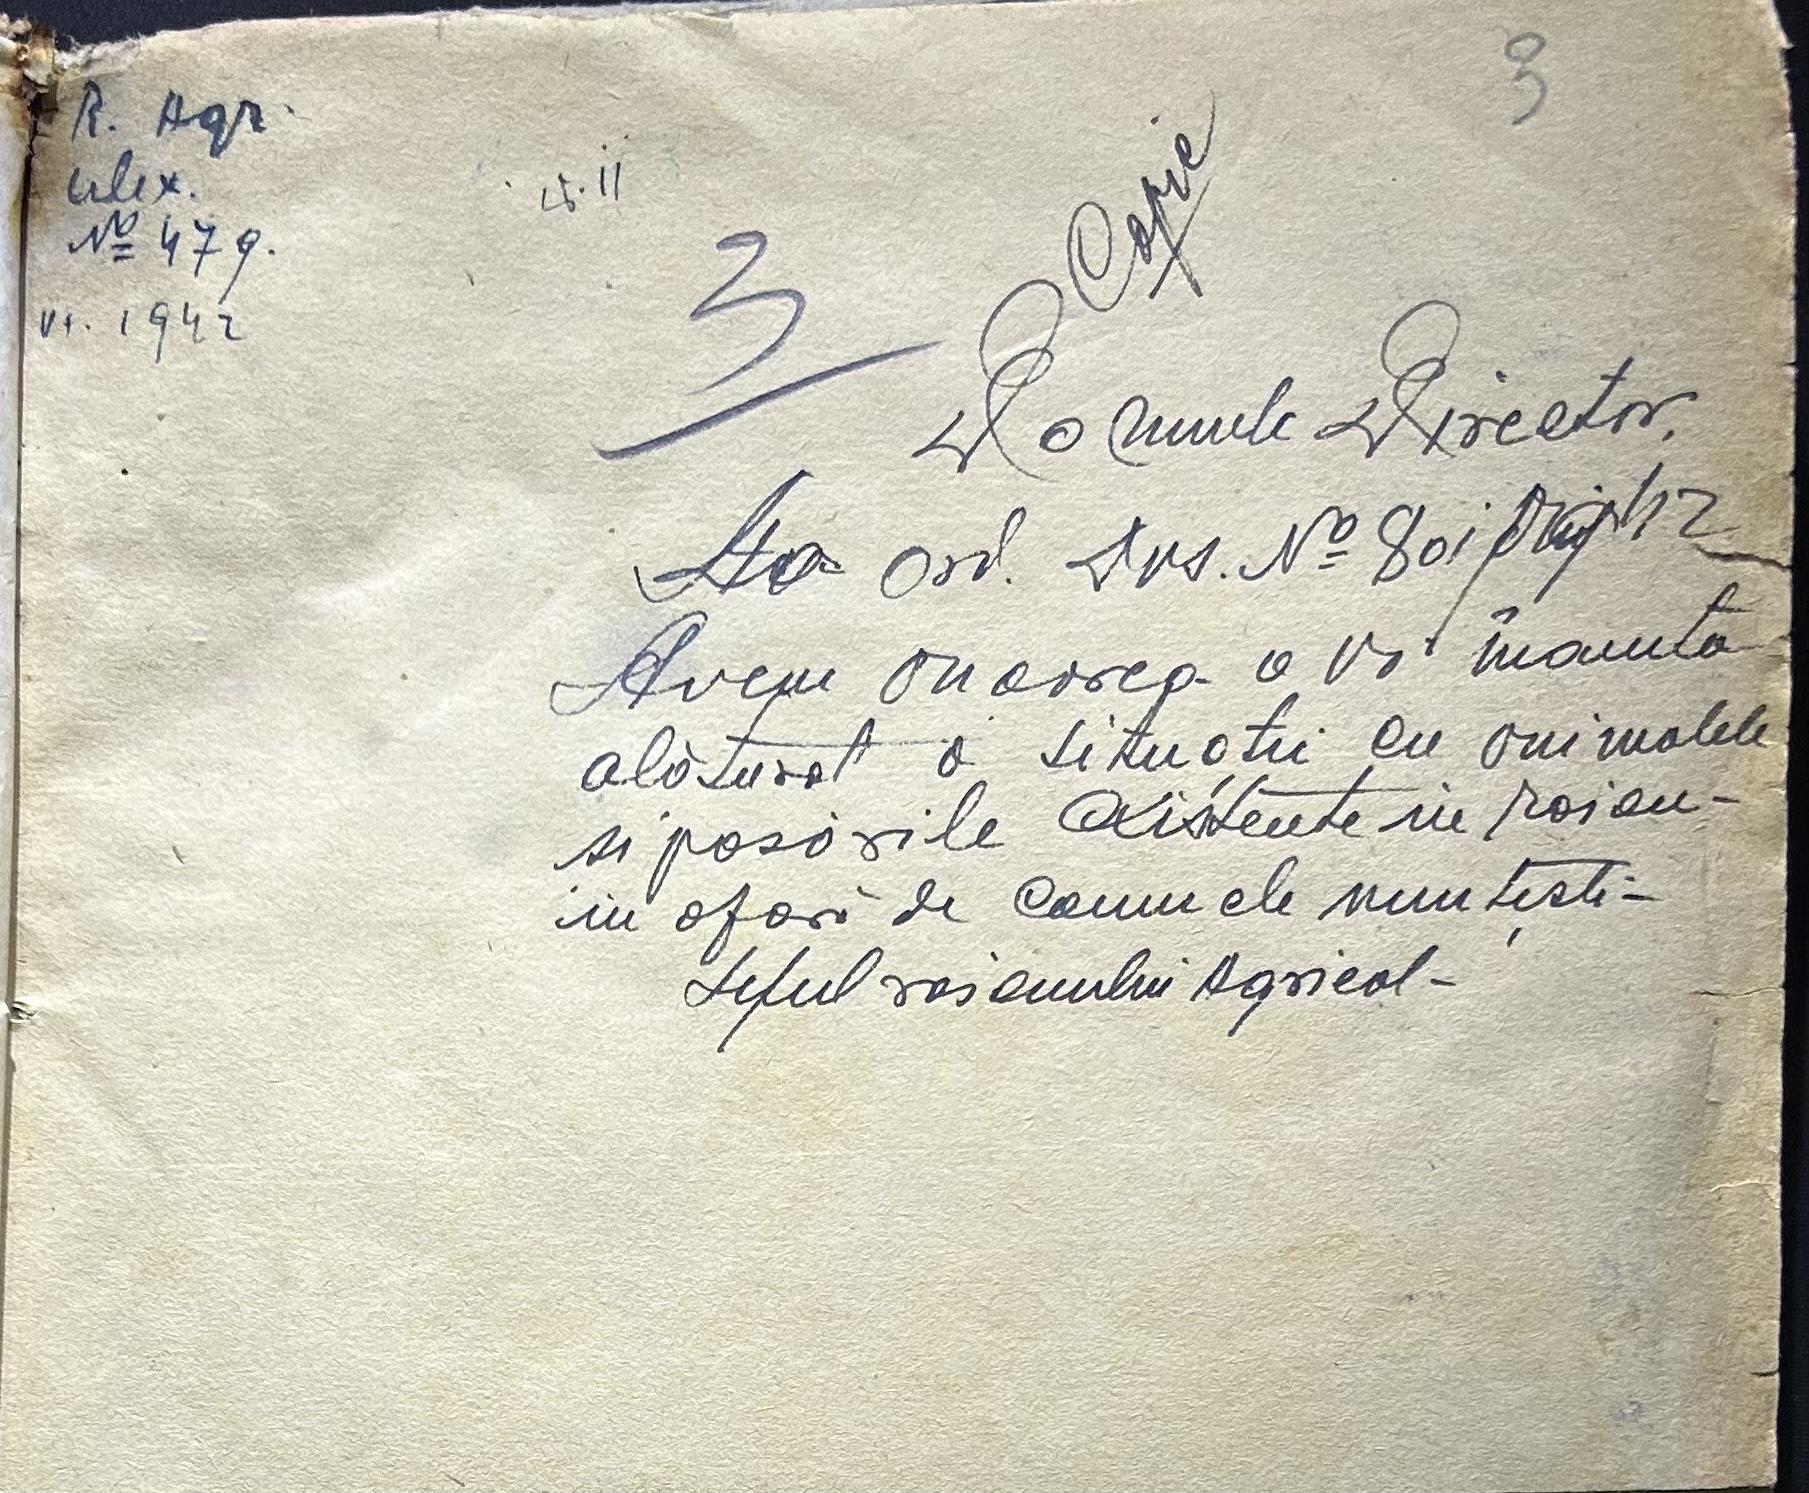 3
R. Agr.
Alex.
Nº 479.
VI. 1942
Copie
3
Domnule Director,
La ord. Dvs. Nº 801
Avem onoarea a vă înainta
alăturat o situatii cu animalele
si pasările existente in raion-
in afară de comunele
Seful raionului Agricol-